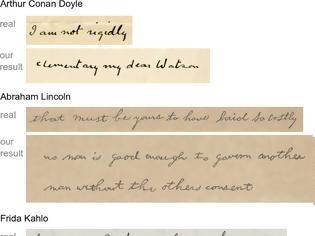 Arthur Conan Doyle
real
I am not rigidly
our
result
elementary my dear Watson
Abraham Lincoln
real
that must be yours to have laid so costly
our
result
no man is good enough to govern another
man without the others consent
Frida Kahlo
real